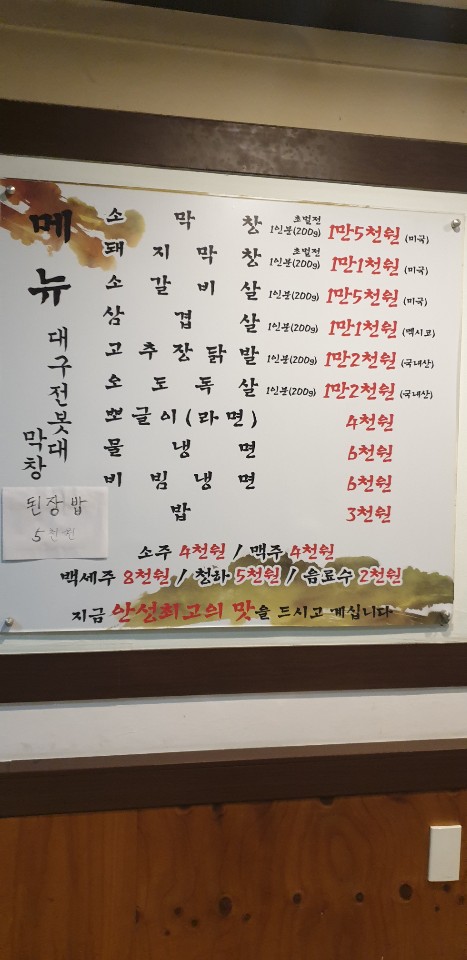 메뉴
대구전봇대
막창
소 막 창 초벌전 1인분(200g) 1만5천원 (미국)
돼지막창 초벌전 1인분(200g) 1만1천원 (미국)
소갈비살 1인분(200g) 1만5천원 (미국)
삼 겹 살 1인분(200g) 1만1천원 (멕시코)
고추장닭발 1인분(200g) 1만2천원 (국내산)
오도독살 1인분(200g) 1만2천원 (국내산)
뽀글이(라면) 4천원
물 냉 면 6천원
비빔냉면 6천원
밥 3천원
된장밥
5천원
소주 4천원 / 맥주 4천원
백세주 8천원 / 청하 5천원 / 음료수 2천원
지금 안성최고의 맛을 드시고 계십니다